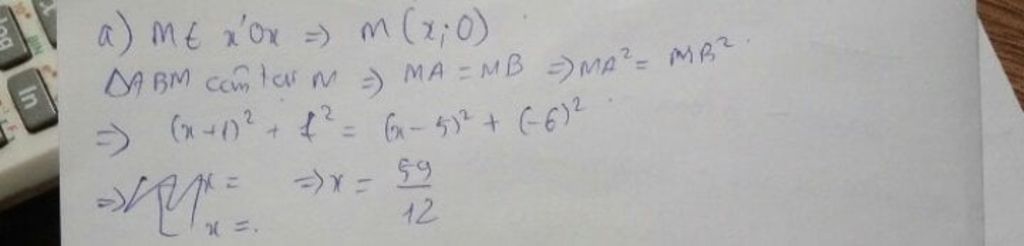 a) M ∈ x'Ox => M(x;0)
ΔABM cân tại M => MA = MB => MA² = MB².
=> (x+1)² + 1² = (x-5)² + (-6)².
=> x = => x = 59/12
x = .